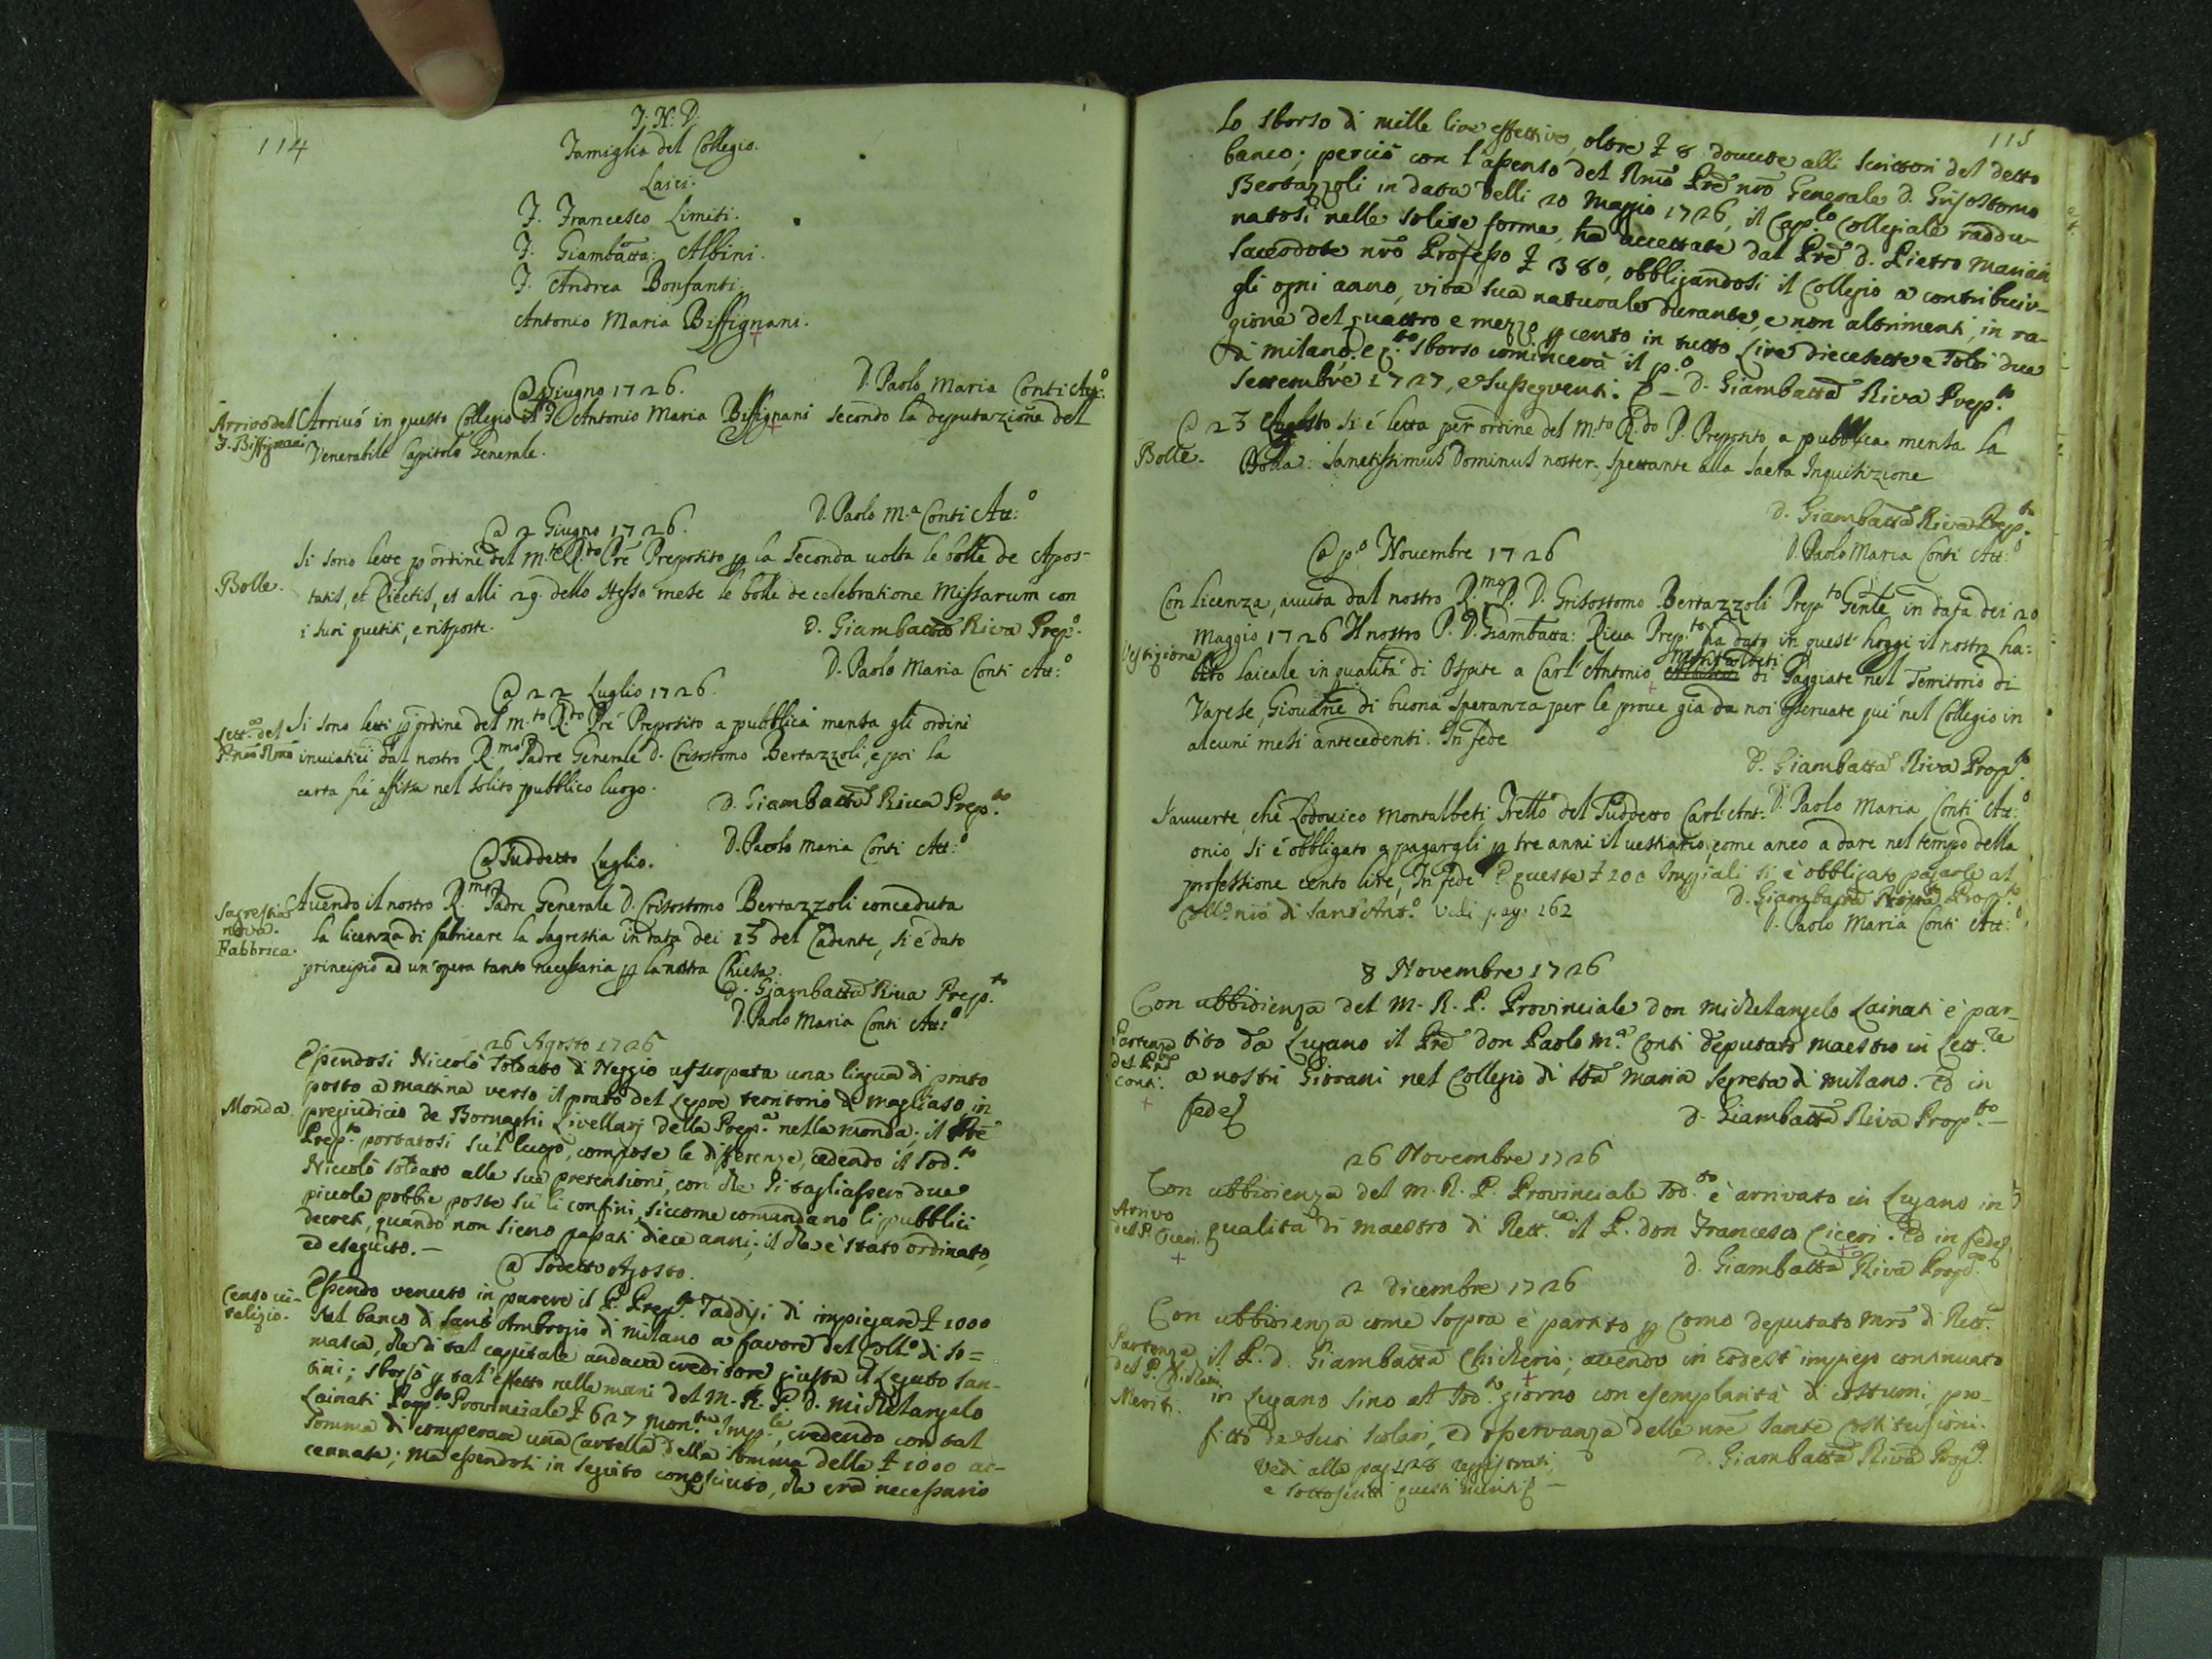 114
J. N. D.
Famiglia del Collegio.
Laici.
F. Francesco Limiti.
F. Giambatta: Albini.
F. Andrea Bonfanti.
Antonio Maria Biffignani.
D. Paolo Maria Conti Att:º
@ Giugno 1726.
Arrivo del F. Biffignani
Arrivó in questo Collegio il F. Antonio Maria Biffignani secondo la deputazione del
Venerabile Capitolo Generale.
D. Paolo M.a Conti Att:º
@ 2 Giugno 1726.
Bolle.
Si sono lette p ordine del m.to R.do Pre Preposito p la seconda uolta le bolle de Apos-
tatis, et Eiectis, et alli 29. dello stesso mese le bolle de celebratione Missarum con
i suoi quesiti, e risposte.
D. Giambatta Riva Prep.º
D. Paolo Maria Conti Att:º
@ 22 Luglio 1726.
Lett.e del P. nro Rmo
Si sono letti p ordine del m.to R.do Pre Preposito a pubblica mensa gli ordini
inuiatici dal nostro R.mo Padre Generale D. Crisostomo Bertazzoli, e poi la
carta fú affissa nel solito pubblico luogo.
D. Giambatta Riua Prep.to
D. Paolo Maria Conti Att:º
@ Suddetto Luglio.
Sagrestia nova. Fabbrica.
Auendo il nostro R.mo Padre Generale D. Crisostomo Bertazzoli conceduta
la licenza di fabricare la Sagrestia in data dei 15 del Cadente, si é dato
principio ad un'opera tanto necessaria p la nostra Chiesa.
D. Giambatta Riua Prep.to
D. Paolo Maria Conti Att:º
26 Agosto 1726
Monda.
Essendosi Niccolò Soldato di Neggio usurpata una lingua di prato
posto a mattina verso il prato del Lepore territorio di Magliaso, in
pregiudicio de Bornaghi Livellarj della Prep.a nella monda; il Prē
Prep.to portatosi su'l luogo, compose le differenze, cedendo il sod.to
Niccolò Soldato alle sue pretensioni, con che si tagliassero due
piccole pobbie poste sù li confini, siccome comandano li pubblici
decreti, quando non sieno passati diece anni; il che è stato ordinato,
ed eseguito. —
@ Sodetto Agosto.
Censo vi-
talizio.
Essendo venuto in parere il P. Prep.to Taddisi di impiegare ₤ 1000
sul banco di Sant' Ambrogio di Milano a favore del Coll.o di So=
masca, che di tal capitale andava creditore giusta il Legato San-
tini; sborsò p tal effetto nelle mani del M. R. P. D. Michelangelo
Lainati Prep.to Provinciale ₤ 627 Mon.ta Imp.le, credendo con tal
somma di comperare una Cartella della somma delle ₤ 1000 ac-
cennate; ma essendosi in seguito conosciuto, che era necessario
115
lo sborso di mille lire effettive, oltre ₤ 8 dovute alli scrittori del detto
banco; perciò con l'assenso del Rmo Prē nro Generale D. Grisostomo
Bertazzoli in data delli 20 Maggio 1726, il Cap.lo Collegiale raddu-
natosi nelle solite forme, ha accettate dal Prē D. Pietro Mariani
Sacerdote nro Professo ₤ 380, obbligandosi il Collegio a contribuir-
gli ogni anno, vita sua naturale durante, e non altrimenti, in ra-
gione del quattro e mezzo p cento in tutto Lire diecesette e soldi due
di milano, e q.to sborso comincerà il p.º
Settembre 1727, e susseguenti. — D. Giambatta Riva Prep.to
Bolle.
@ 23 Agosto si é letta per ordine del m.to R.do P. Preposito a pubblica mensa la
Bolla: Sanctissimus Dominus noster, spettante alla sacra Inquisizione
D. Giambatta Riva Prep.to
D. Paolo Maria Conti Att:º
@ p.º Nouembre 1726
Vestizione
Con licenza auuta dal nostro R.mo P. D. Grisostomo Bertazzoli Prep.to Genle in data dei 20
Maggio 1726 Il nostro P. D. Giambatta: Riua Prep.to ha dato in quest' hoggi il nostro ha-
bito laicale in qualitá di Ospite a Carl' Antonio Montalbeti di Daggiate nel Territorio di
Varese, Giouane di buona speranza per le proue giá da noi osseruate qui nel Collegio in
alcuni mesi antecedenti. In fede
D. Giambatta Riva Prep.to
D. Paolo Maria Conti Att:º
S'auuerte, che Lodouico Montalbeti Frello del suddetto Carl' Ant-
onio, si é obbligato a pagargli p tre anni il uestiario, come anco a dare nel tempo della
professione cento lire, In fede E queste ₤ 100 Imperiali si è obbligato pagarle al
Coll.o nro di Sant' Ant.o Vedi pag: 162
D. Giambatta Riva Prep.to
D. Paolo Maria Conti Att:º
8 Novembre 1726
Partenza del P. Conti.
Con ubbidienza del M. R. P. Provinciale don Michelangelo Lainati è par-
tito da Lugano il Prē don Paolo M.a Conti deputato Maestro in Lett.re
a nostri Giovani nel Collegio di Sta Maria Segreta di Milano. Ed in
fede
D. Giambatta Riva Prep.to —
26 Novembre 1726
Arrivo del P. Ciceri.
Con ubbidienza del M. R. P. Provinciale sod.to è arrivato in Lugano in
qualità di maestro di Rett.ca il P. don Francesco Ciceri. Ed in fede
D. Giambatta Riva Prep.to
2 Dicembre 1726
Partenza del P. Chicherio. Meriti.
Con ubbidienza come sopra è partito p Como deputato Mro di Rett.a
il P. D. Giambatta Chicherio; avendo in codest' impiego continuato
in Lugano sino al sod.to giorno con esemplarità di costumi, pro-
fitto de suoi scolari, ed osservanza delle nre sante costituzioni.
D. Giambatta Riva Prep.to
Vedi alla pag 128 reggistrati,
e sottoscritti questi meriti —